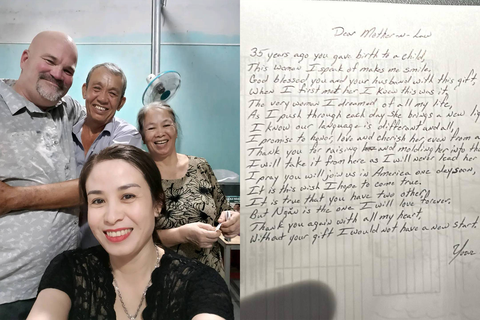 Dear Mother-n-Law
35 years ago you gave birth to a child,
This woman I speak of makes me smile.
God blessed you and your husband with this gift,
When I first met her I knew this was it,
The very woman I dreamed of all my life,
As I push through each day she brings a new
I know our language is different and all,
I promise to honor, love and cherish her even from a
Thank you for raising her and molding her into the
I will take it from here as I will never lead her
I pray you will join us in America one day soon,
It is this wish I hope to come true.
It is true that you have two others,
But Ngân is the one I will love forever.
Thank you again with all my heart,
Without your gift I would not have a new start.
Your